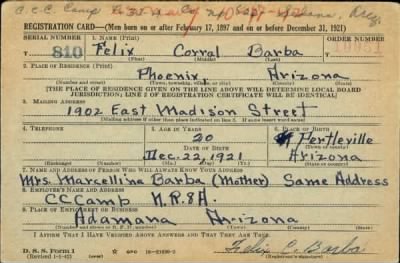 C.C.C. Camp
REGISTRATION CARD—(Men born on or after February 17, 1897 and on or before December 31, 1921)
SERIAL NUMBER
1. NAME (Print)
ORDER NUMBER
810
Felix Corral Barba
(First) (Middle) (Last)
2. PLACE OF RESIDENCE (Print)
Phoenix, Arizona
(Number and street) (Town, township, village, or city) (County) (State)
[THE PLACE OF RESIDENCE GIVEN ON THE LINE ABOVE WILL DETERMINE LOCAL BOARD
JURISDICTION; LINE 2 OF REGISTRATION CERTIFICATE WILL BE IDENTICAL]
3. MAILING ADDRESS
1902 East Madison Street
[Mailing address if other than place indicated on line 2. If same insert word same]
4. TELEPHONE
5. AGE IN YEARS
6. PLACE OF BIRTH
20
Pertleville
DATE OF BIRTH
(Town or county)
Dec. 22, 1921
Arizona
(Exchange) (Number) (Mo.) (Day) (Yr.) (State or country)
7. NAME AND ADDRESS OF PERSON WHO WILL ALWAYS KNOW YOUR ADDRESS
Mrs. Marcellina Barba (Mother) Same Address
8. EMPLOYER'S NAME AND ADDRESS
CC Camp N.P. 8 A.
9. PLACE OF EMPLOYMENT OR BUSINESS
Adamana Arizona
(Number and street or R. F. D. number) (Town) (County) (State)
I AFFIRM THAT I HAVE VERIFIED ABOVE ANSWERS AND THAT THEY ARE TRUE.
D. S. S. Form 1
(Revised 1-1-42)
16—21630-2
Felix C. Barba
(Registrant's signature)